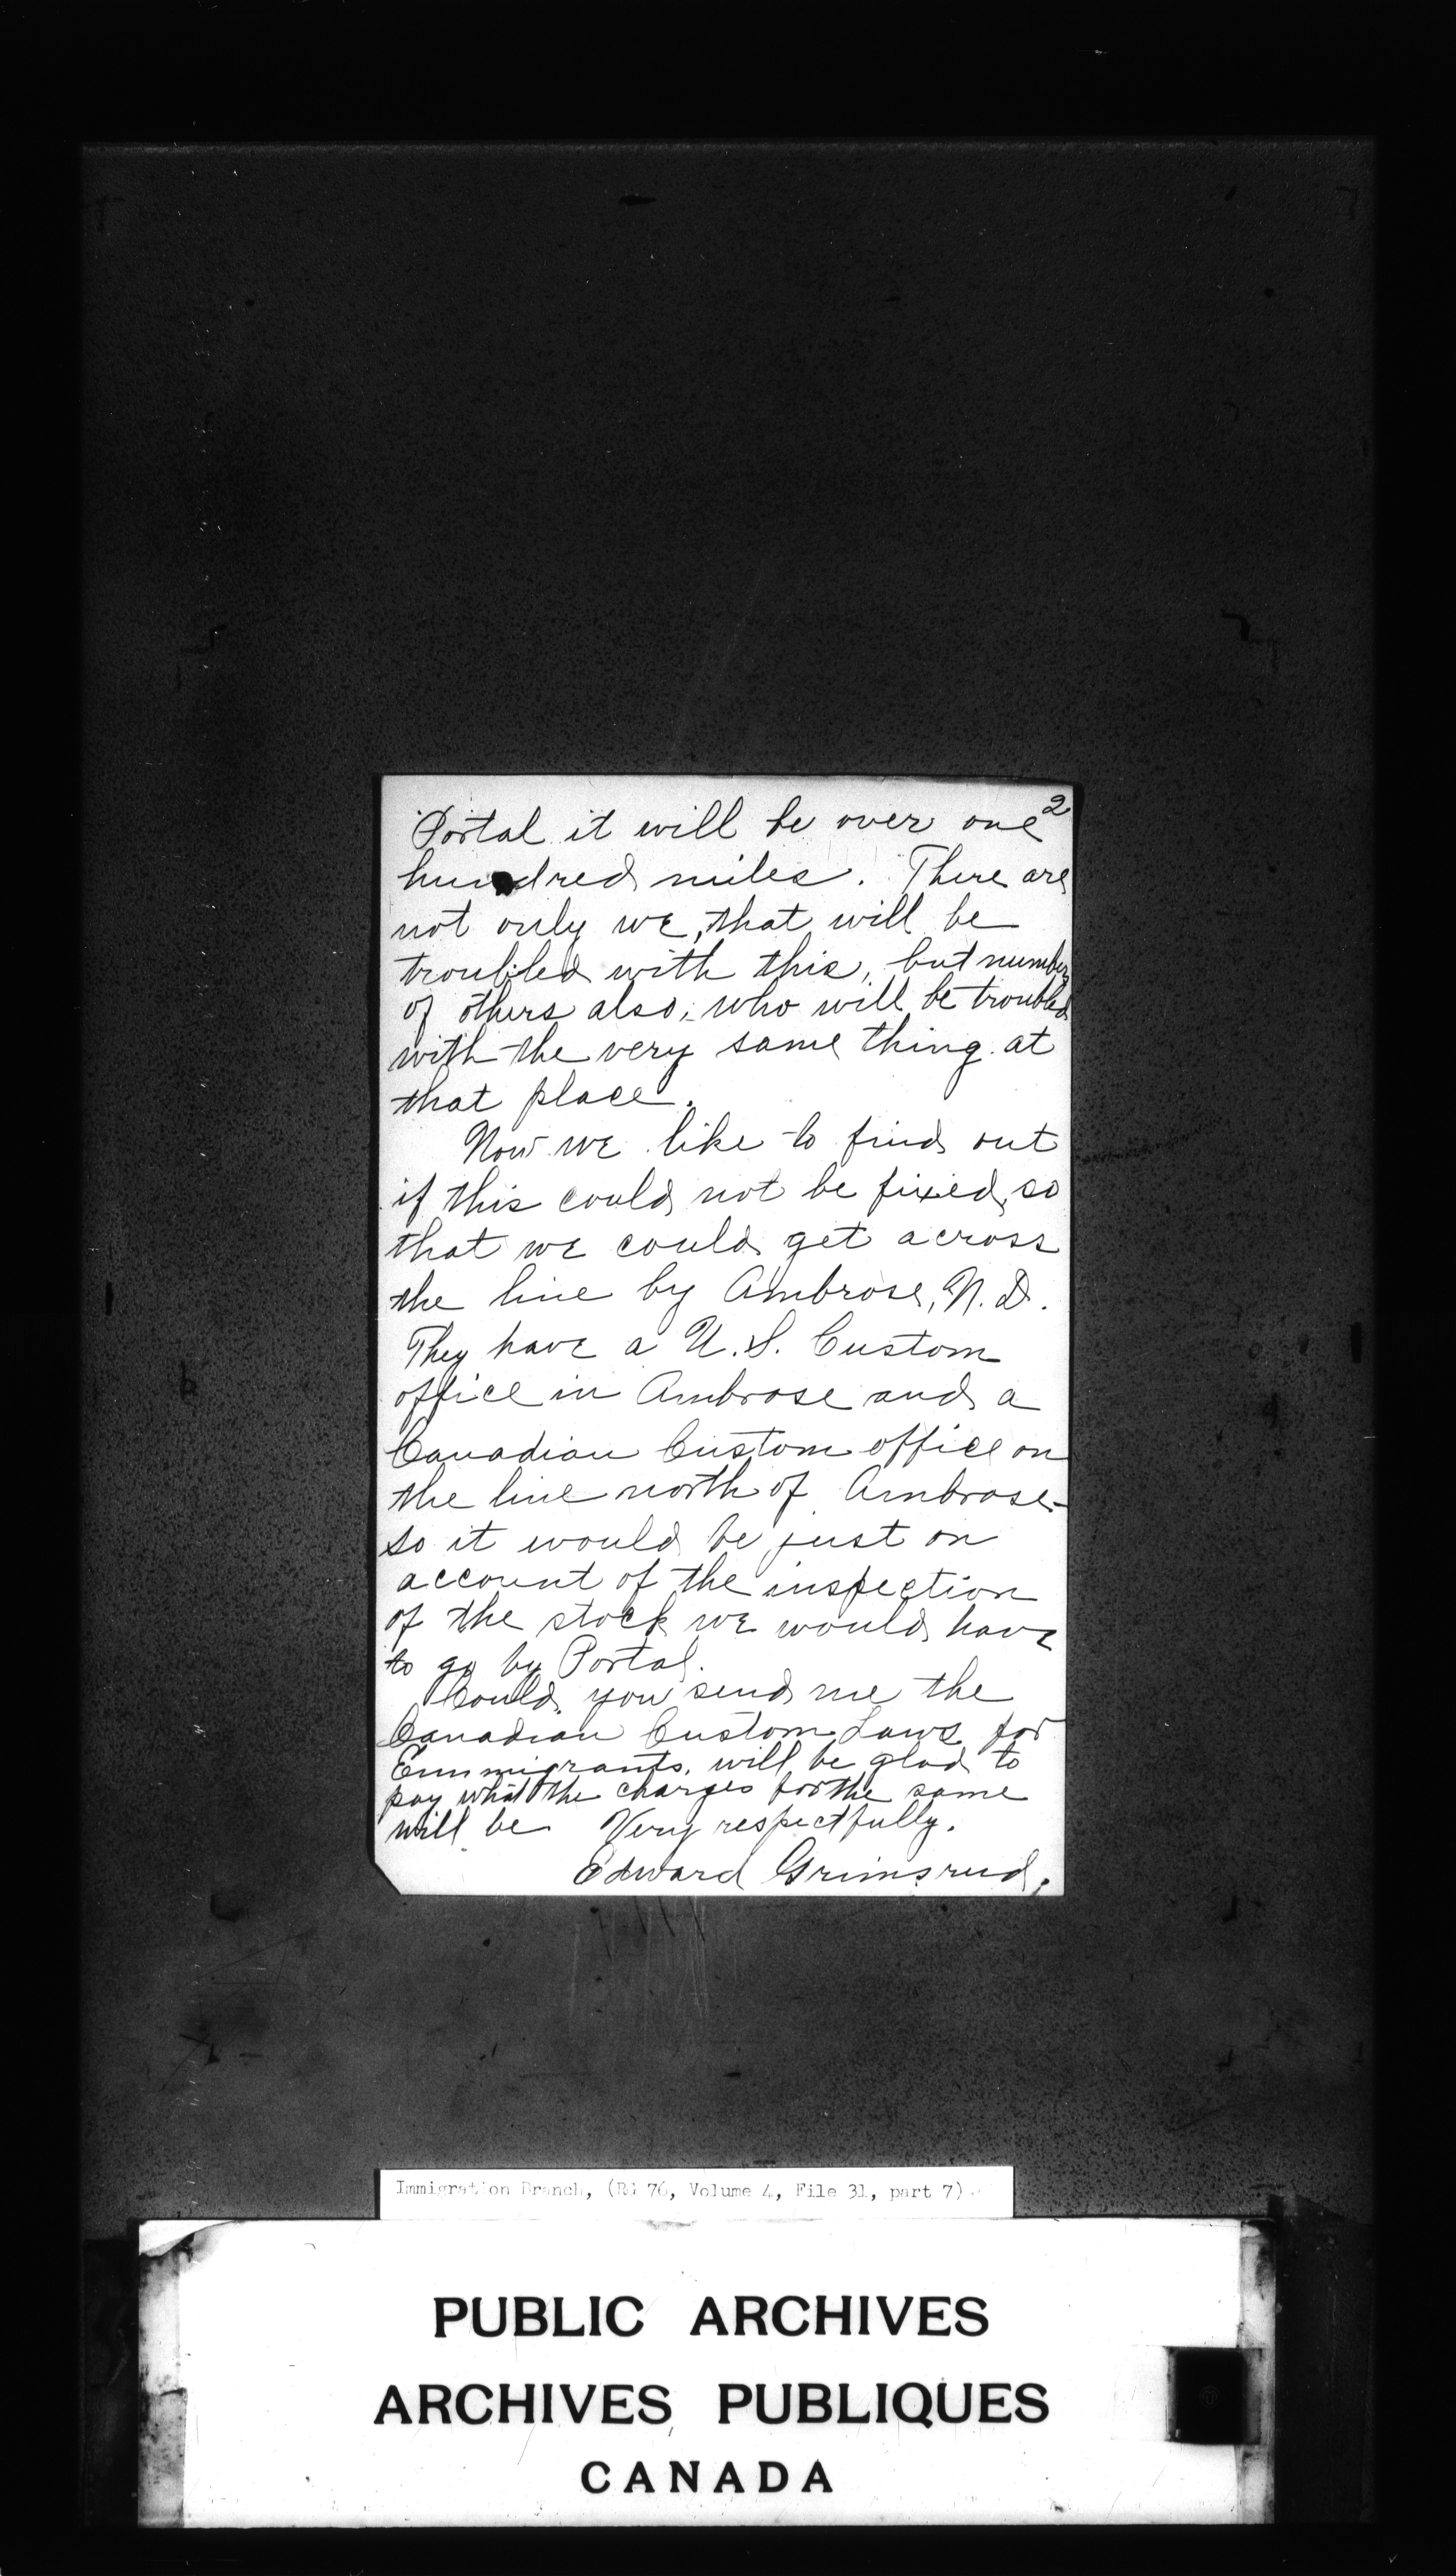 2
Portal it will be over one
hundred miles. There are
not only we, that will be
troubled with this, but number
of others also, who will be troubled
with the very same thing at
that place.
Now we like to find out
if this could not be fixed, so
that we could get across
the line by Ambrose, N. D.
They have a U. S. Custom
office in Ambrose and a
Canadian Custom office on
the line north of Ambrose-
so it would be just on
account of the inspection
of the stock we would have
to go by Portal.
Could you send me the
Canadian Custom Laws for
Emmigrants, will be glad to
pay what the charges for the same
will be Very respectfully.
Edward Grimsrud,
Immigration Branch, (RG 76, Volume 4, File 31, part 7)
PUBLIC ARCHIVES
ARCHIVES PUBLIQUES
CANADA